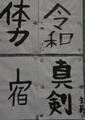 令和
体力
真剣
宿